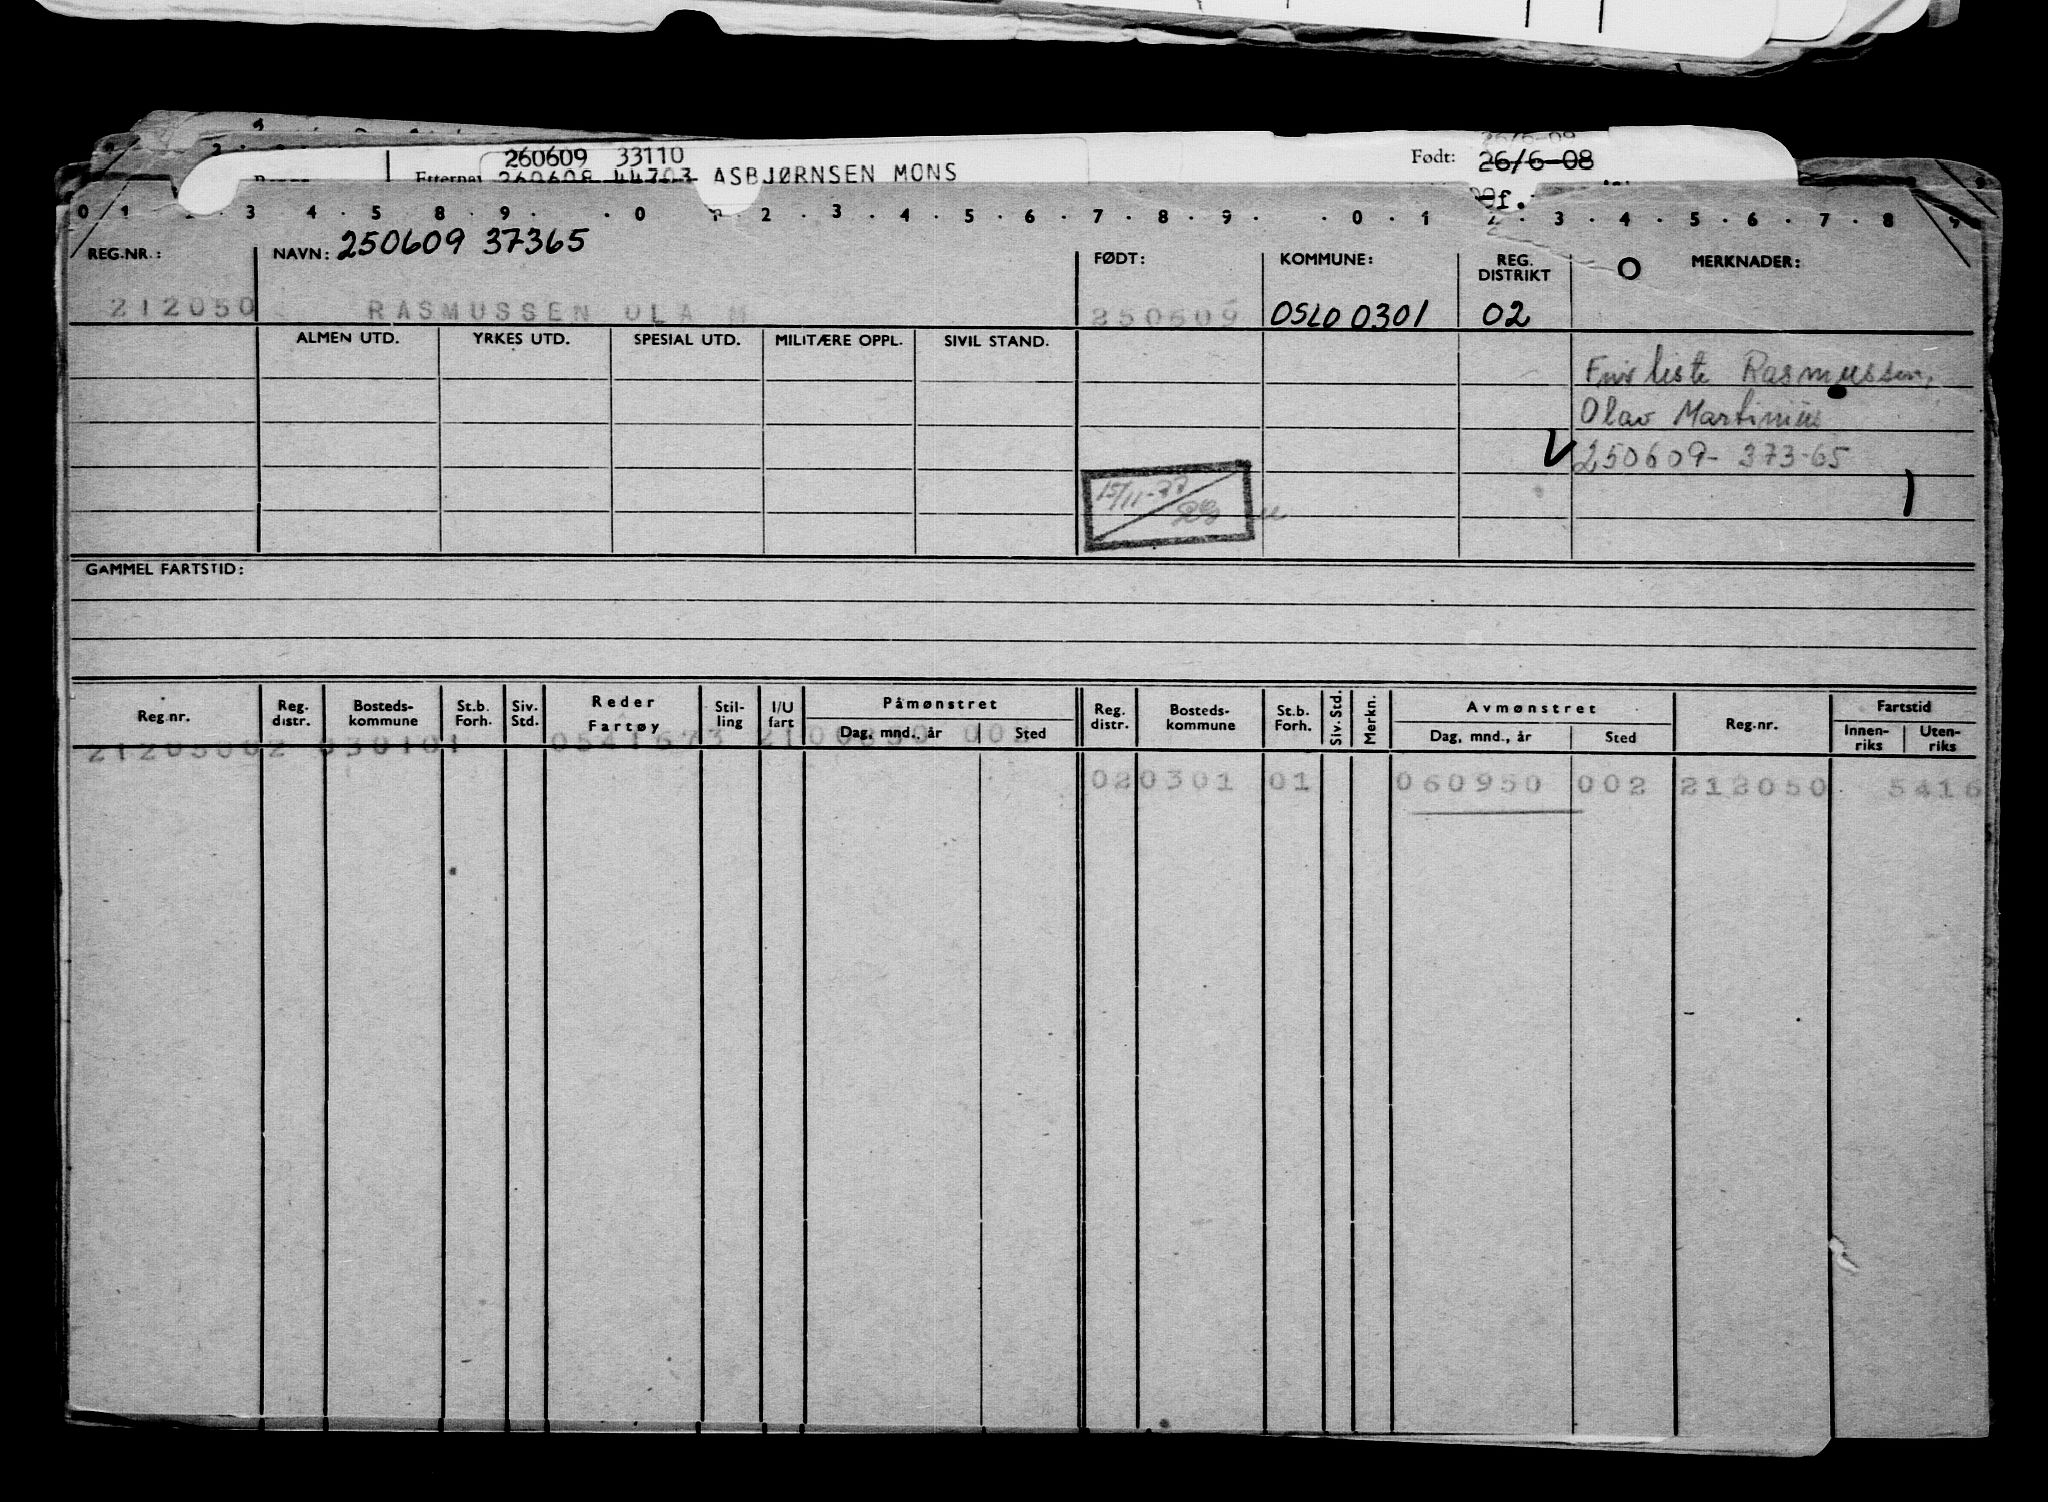 260609 33110
260608 44703 ASBJØRNSEN MONS
Født: 26/6-08
0 1 2 3 4 5 8 9 0 1 2 3 4 5 6 7 8 9 0 1 2 3 4 5 6 7 8 9
REG.NR.: NAVN: 250609 37365 FØDT: KOMMUNE: REG. DISTRIKT MERKNADER:
212050 RASMUSSEN OLA M 250609 OSLO 0301 02
ALMEN UTD. YRKES UTD. SPESIAL UTD. MILITÆRE OPPL. SIVIL STAND.
liste Rasmussen,
Olav Martinius
V 250609- 373-65
15/11-77
GAMMEL FARTSTID:
Reg.nr. Reg. distr. Bosteds-kommune St.b. Forh. Siv. Std. Reder Fartøy Stil-ling I/U fart Påmønstret Dag, mnd., år Sted Reg. distr. Bosteds-kommune St.b. Forh. Siv. Std. Merkn. Avmønstret Dag, mnd., år Sted Reg.nr. Fartstid Innen-riks Uten-riks
21205002 030101
020301 01 060950 002 212050 5416